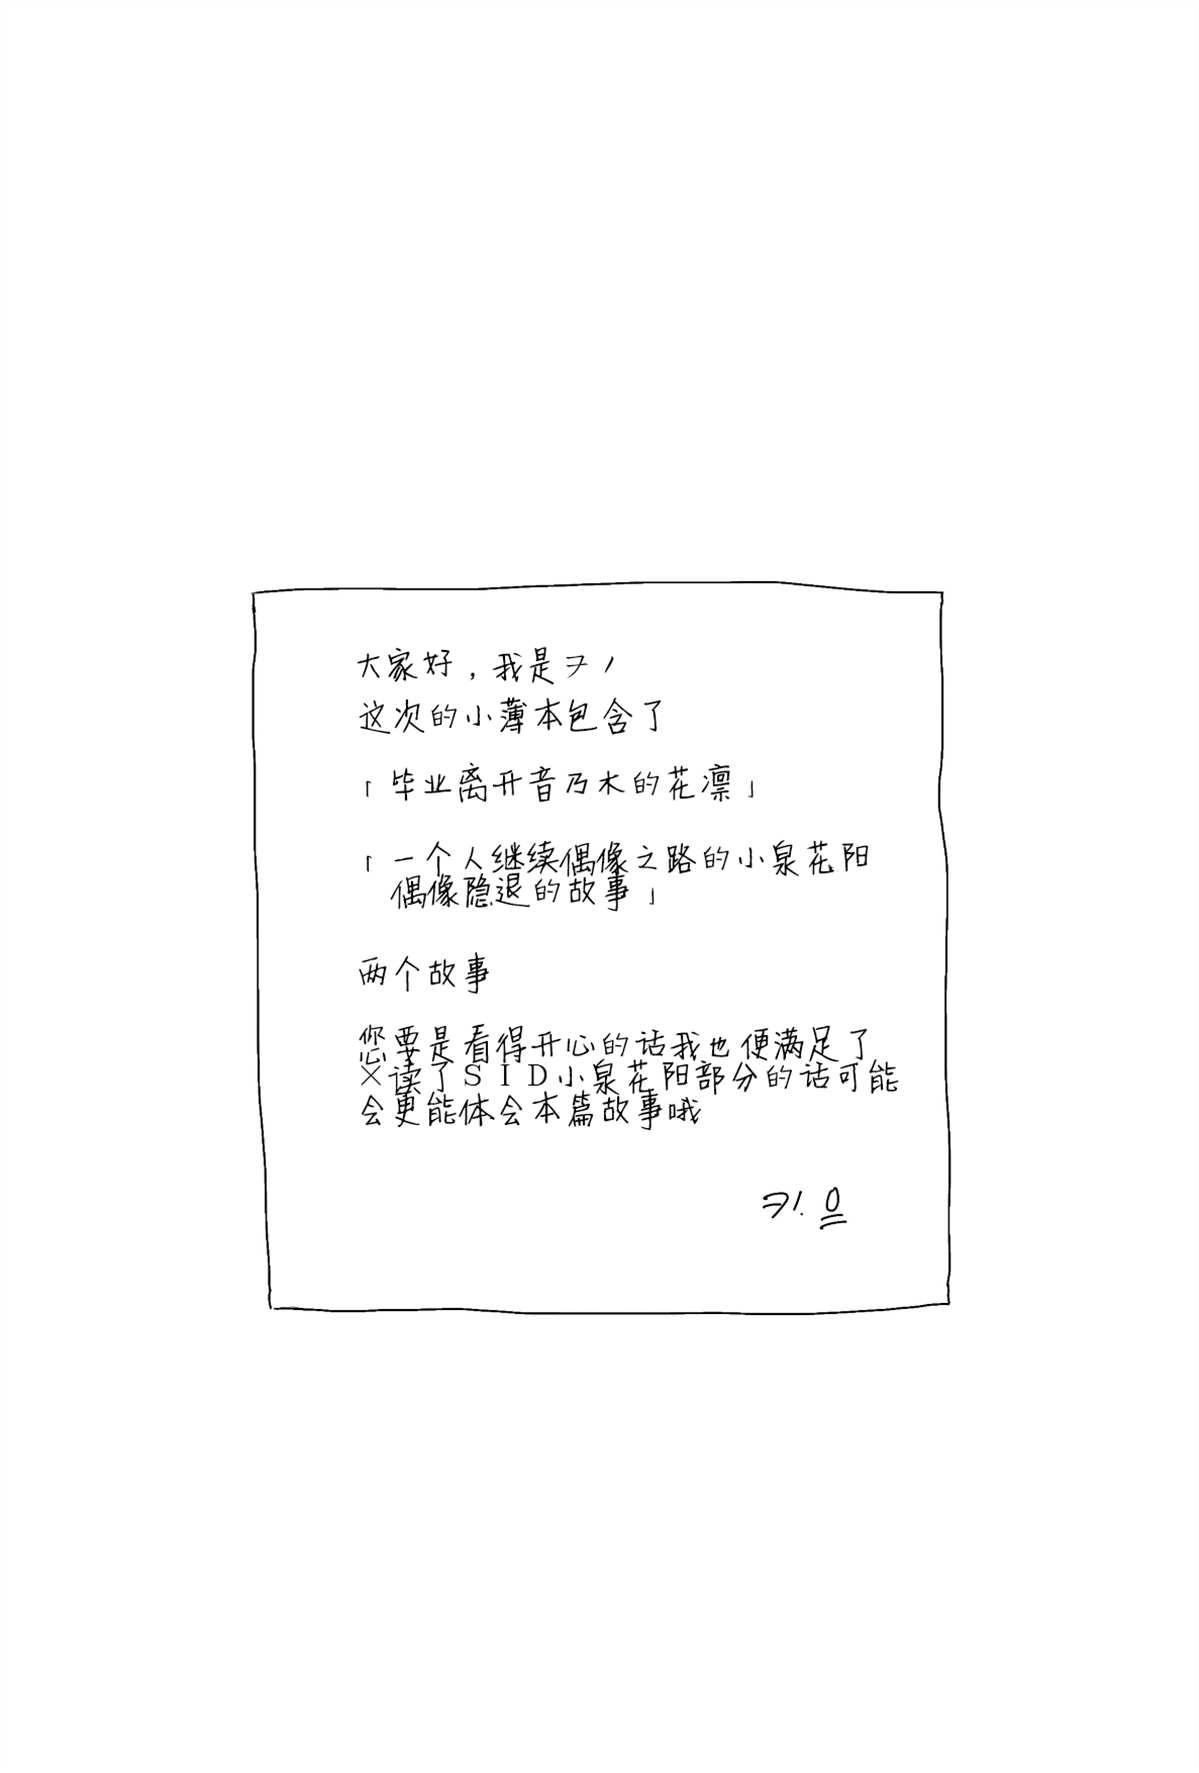 大家好，我是ヲノ
这次的小薄本包含了
「毕业离开音乃木的花凛」
「一个人继续偶像之路的小泉花阳
偶像隐退的故事」
两个故事
您要是看得开心的话我也便满足了
×读了SID小泉花阳部分的话可能
会更能体会本篇故事哦
ヲノ.